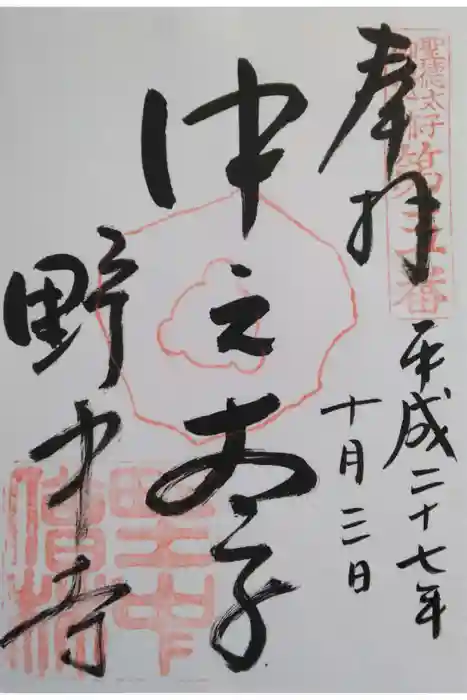 奉拝
聖徳太子
第五番
平成二十七年
十月三日
中之太子
野中寺
野中